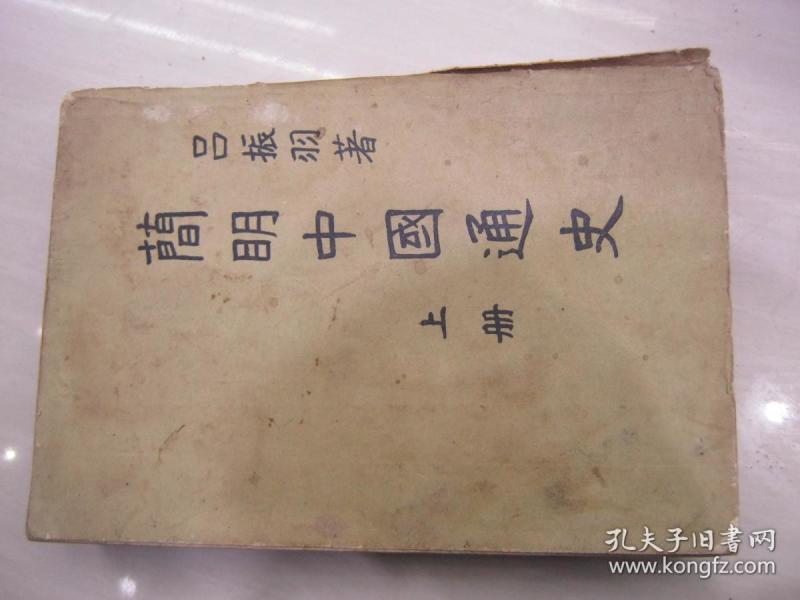 吕振羽著
簡明中國通史
上册
孔夫子旧書网
www.kongfz.com